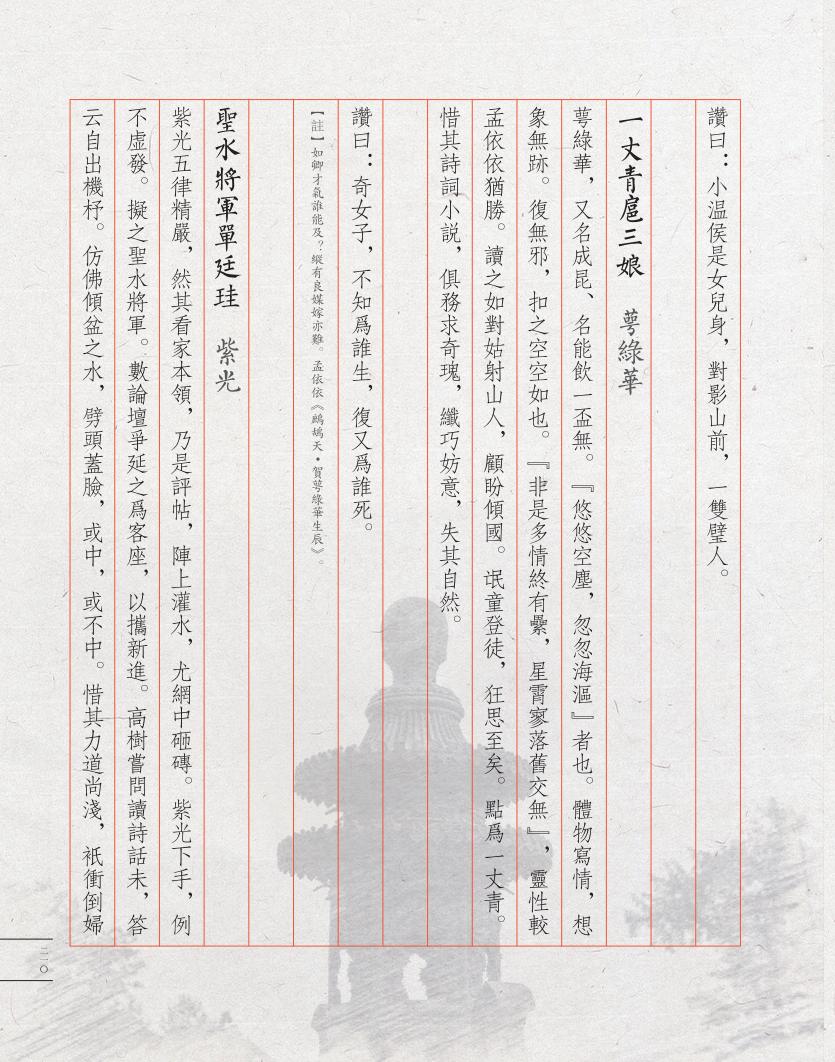 讚曰：小温侯是女兒身，對影山前，一雙璧人。
一丈青扈三娘　萼綠華
萼綠華，又名成昆、名能飲一盃無。『悠悠空塵，忽忽海漚』者也。體物寫情，想
象無跡。復無邪，扣之空空如也。『非是多情終有纍，星霄寥落舊交無』，靈性較
孟依依猶勝。讀之如對姑射山人，顧盼傾國。氓童登徒，狂思至矣。點爲一丈青。
惜其詩詞小説，俱務求奇瑰，纖巧妨意，失其自然。
讚曰：奇女子，不知爲誰生，復又爲誰死。
【註】如卿才氣誰能及？縱有良媒嫁亦難。孟依依《鷓鴣天·賀萼綠華生辰》。
聖水將軍單廷珪　紫光
紫光五律精嚴，然其看家本領，乃是評帖，陣上灌水，尤網中砸磚。紫光下手，例
不虛發。擬之聖水將軍。數論壇爭延之爲客座，以攜新進。高樹嘗問讀詩話未，答
云自出機杼。仿佛傾盆之水，劈頭蓋臉，或中，或不中。惜其力道尚淺，衹衝倒婦
二〇